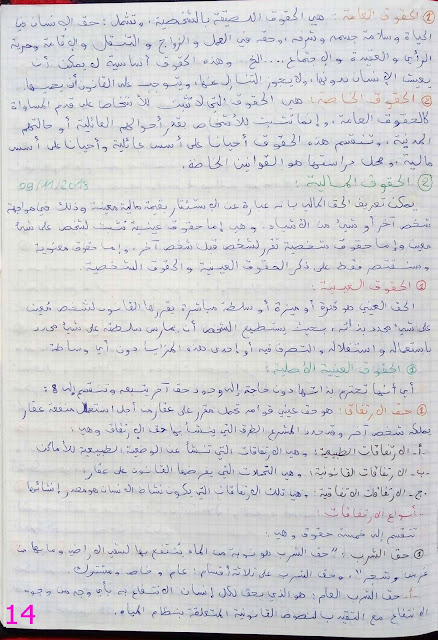 ① الحقوق العامة: هي الحقوق اللصيقة بالشخصية، وتشمل: حق الإنسان في
الحياة وسلامة جسمه وشرفه، وحقه في العمل والزواج والتنقل والإقامة وحرية
الرأي والعقيدة والإجتماع.... الخ. وهذه الحقوق أساسية لا يمكن أن
يعيش الإنسان بدونها، ولا يجوز التنازل عنها، ويتوجب على القانون أن يحميها.
② الحقوق الخاصة: هي الحقوق التي لا تثبت للأشخاص على قدم المساواة
كالحقوق العامة، وإنما تثبت للأشخاص بقدر أحوالهم العائلية أو حالتهم
المدنية، وتنقسم هذه الحقوق أحيانا على أسس عائلية وأحيانا على أسس
مالية، ومحل دراستها هو القوانين الخاصة.
② الحقوق المالية: 09/11/2018
يمكن تعريف الحق المالي بأنه عبارة عن الاستئثار بقيمة مالية معينة وذلك في مواجهة
شخص آخر أو شيء من الأشياء. وهي إما حقوق عينية تثبت لشخص على شيء
معين وإما حقوق شخصية تقرر لشخص قبل شخص آخر، وإما حقوق معنوية
وسنقتصر فقط على ذكر الحقوق العينية والحقوق الشخصية.
الحقوق العينية:
الحق العيني هو قدرة أو ميزة أو سلطة مباشرة يقررها القانون لشخص معين
على شيء محدد بذاته، بحيث يستطيع الشخص أن يمارس سلطته على شيء محدد
باستعماله واستغلاله والتصرف فيه أو إحدى هذه المزايا دون أي وساطة
الحقوق العينية الأصلية:
أي أنها تحترم لذاتها دون حاجة إلى وجود حق آخر يتبعه وتنقسم إلى 8:
① حق الإرتفاق: هو حق عيني قوامه تحمل مقرر على عقار من أجل استعمال منفعة عقار
يملكه شخص آخر وقد حدد المشرع الطرق التي ينشأ بها حق الإرتفاق وهي:
أ. الإرتفاقات الطبيعية: وهي الإرتفاقات التي تنشأ عن الوضعية الطبيعية للأماكن.
ب. الإرتفاقات القانونية: وهي التحملات التي يفرضها القانون على عقار.
ج. الإرتفاقات الإتفاقية: هي تلك الإرتفاقات التي يكون نشاط الإنسان هو مصدر إنشائها
أنواع الإرتفاقات:
تنقسم إلى خمسة حقوق وهي:
① حق الشرب: "حق الشرب هو نوبة من الماء ينتفع بها لسقي الأراضي وما بها من
غرس وشجر". وحق الشرب على ثلاثة أقسام: عام، وخاص، ومشترك
أ. حق الشرب العام: هو الذي يحق لكل إنسان الإنتفاع به بأي وجه من وجوه
الإنتفاع مع التقيد بالنصوص القانونية المتعلقة بنظام المياه.
14